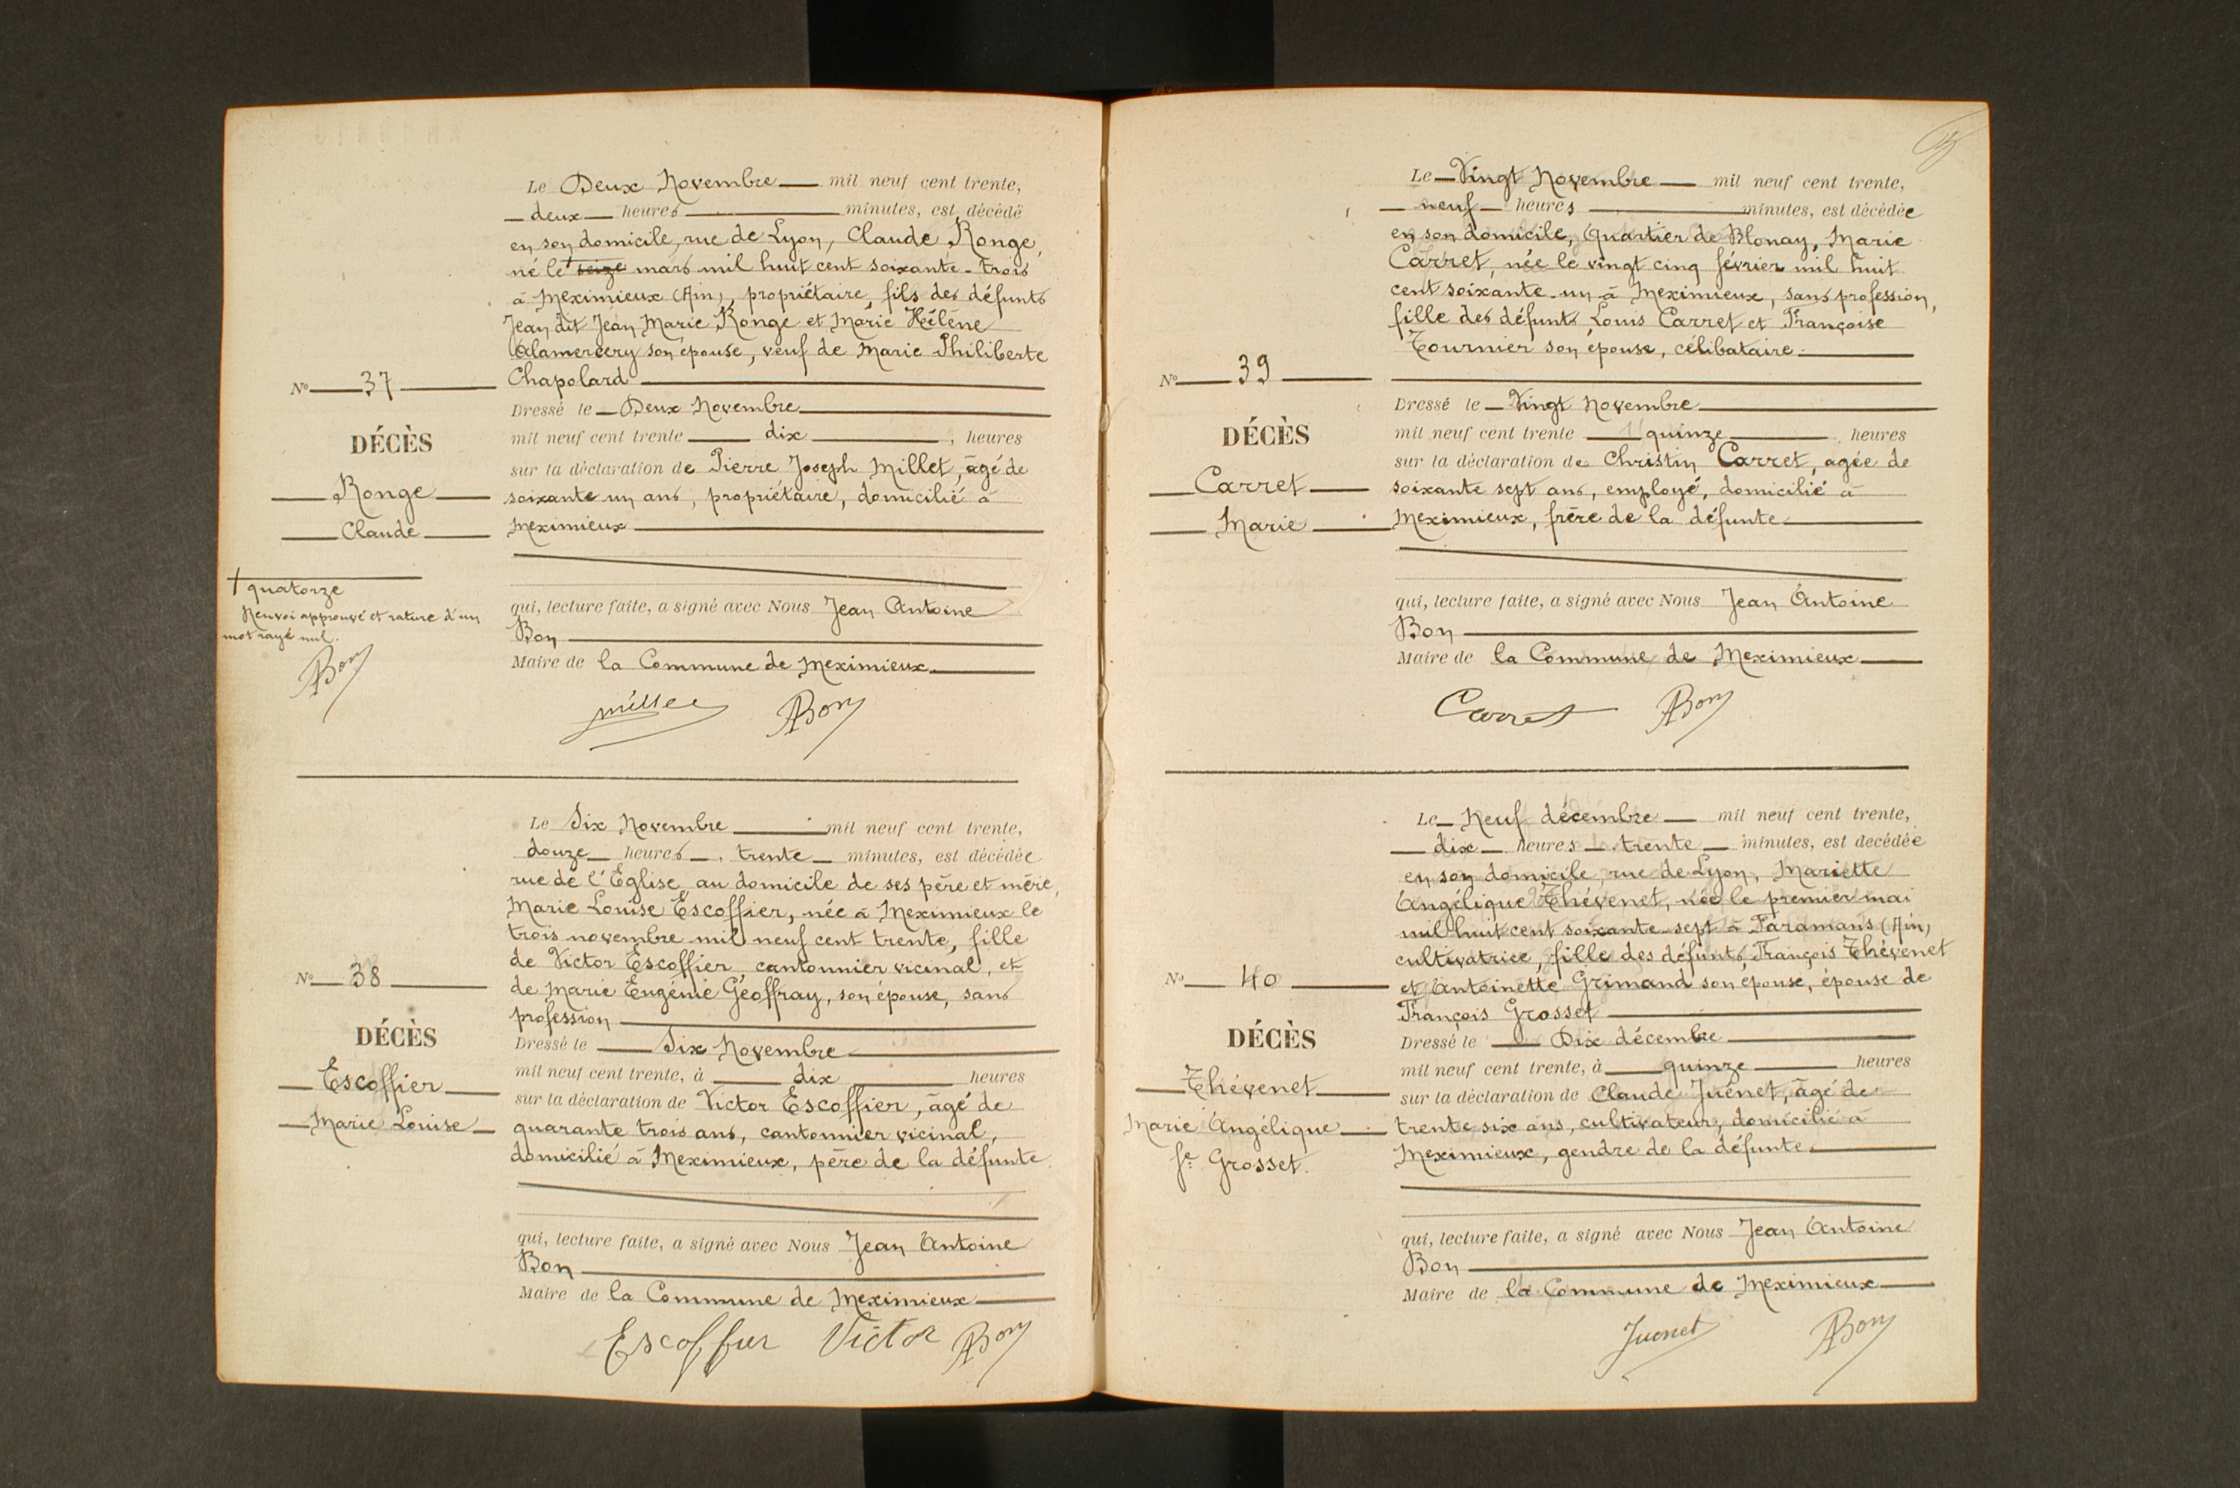 Le Deux Novembre mil neuf cent trente,
deux heures minutes, est décédé
en son domicile, rue de Lyon, Claude Ronge,
né le + seize mars mil huit cent soixante-trois
à Meximieux (Ain), propriétaire, fils des défunts
Jean dit Jean Marie Ronge et Marie Hélène
Alamercery son épouse, veuf de Marie Philiberte
Chapolard
Nº 37
DÉCÈS
Ronge
Claude
+ quatorze
Renvoi approuvé et rature d'un
mot rayé nul.
ABon
Dressé le Deux Novembre
mil neuf cent trente dix, heures
sur la déclaration de Pierre Joseph Millet, âgé de
soixante un ans, propriétaire, domicilié à
Meximieux
qui, lecture faite, a signé avec Nous Jean Antoine
Bon
Maire de la Commune de Meximieux
Millet ABon
Le Six Novembre mil neuf cent trente,
douze heures, trente minutes, est décédée
rue de l'Église au domicile de ses père et mère,
Marie Louise Escoffier, née à Meximieux le
trois novembre mil neuf cent trente, fille
de Victor Escoffier, cantonnier vicinal, et
de Marie Eugénie Géoffray, son épouse, sans
profession
Nº 38
DÉCÈS
Escoffier
Marie Louise
Dressé le Six Novembre
mil neuf cent trente, à dix heures
sur la déclaration de Victor Escoffier, âgé de
quarante trois ans, cantonnier vicinal,
domicilié à Meximieux, père de la défunte
qui, lecture faite, a signé avec Nous Jean Antoine
Bon
Maire de la Commune de Meximieux
Escoffier Victor ABon
Le Vingt Novembre mil neuf cent trente,
neuf heures minutes, est décédée
en son domicile, Quartier de Blonay, Marie
Carret, née le vingt cinq février mil huit
cent soixante-un à Meximieux, sans profession,
fille des défunts Louis Carret et Françoise
Tournier son épouse, célibataire.
Nº 39
DÉCÈS
Carret
Marie
Dressé le Vingt Novembre
mil neuf cent trente quinze heures
sur la déclaration de Christin Carret, agée de
soixante sept ans, employé, domicilié à
Meximieux, frère de la défunte
qui, lecture faite, a signé avec Nous Jean Antoine
Bon
Maire de la Commune de Meximieux
Carret ABon
Le Neuf décembre mil neuf cent trente,
dix heures trente minutes, est decédée
en son domicile, rue de Lyon, Mariette
Angélique Thévenet, née le premier mai
mil huit cent soixante-sept à Faramans (Ain)
cultivatrice, fille des défunts François Thévenet
et Antoinette Grimand son épouse, épouse de
François Grosset
Nº 40
DÉCÈS
Thévenet
Marie Angélique
fe Grosset.
Dressé le Dix décembre
mil neuf cent trente, à quinze heures
sur la déclaration de Claude Juénet, âgé de
trente six ans, cultivateur, domicilié à
Meximieux, gendre de la défunte
qui, lecture faite, a signé avec Nous Jean Antoine
Bon
Maire de la Commune de Meximieux
Juenet ABon